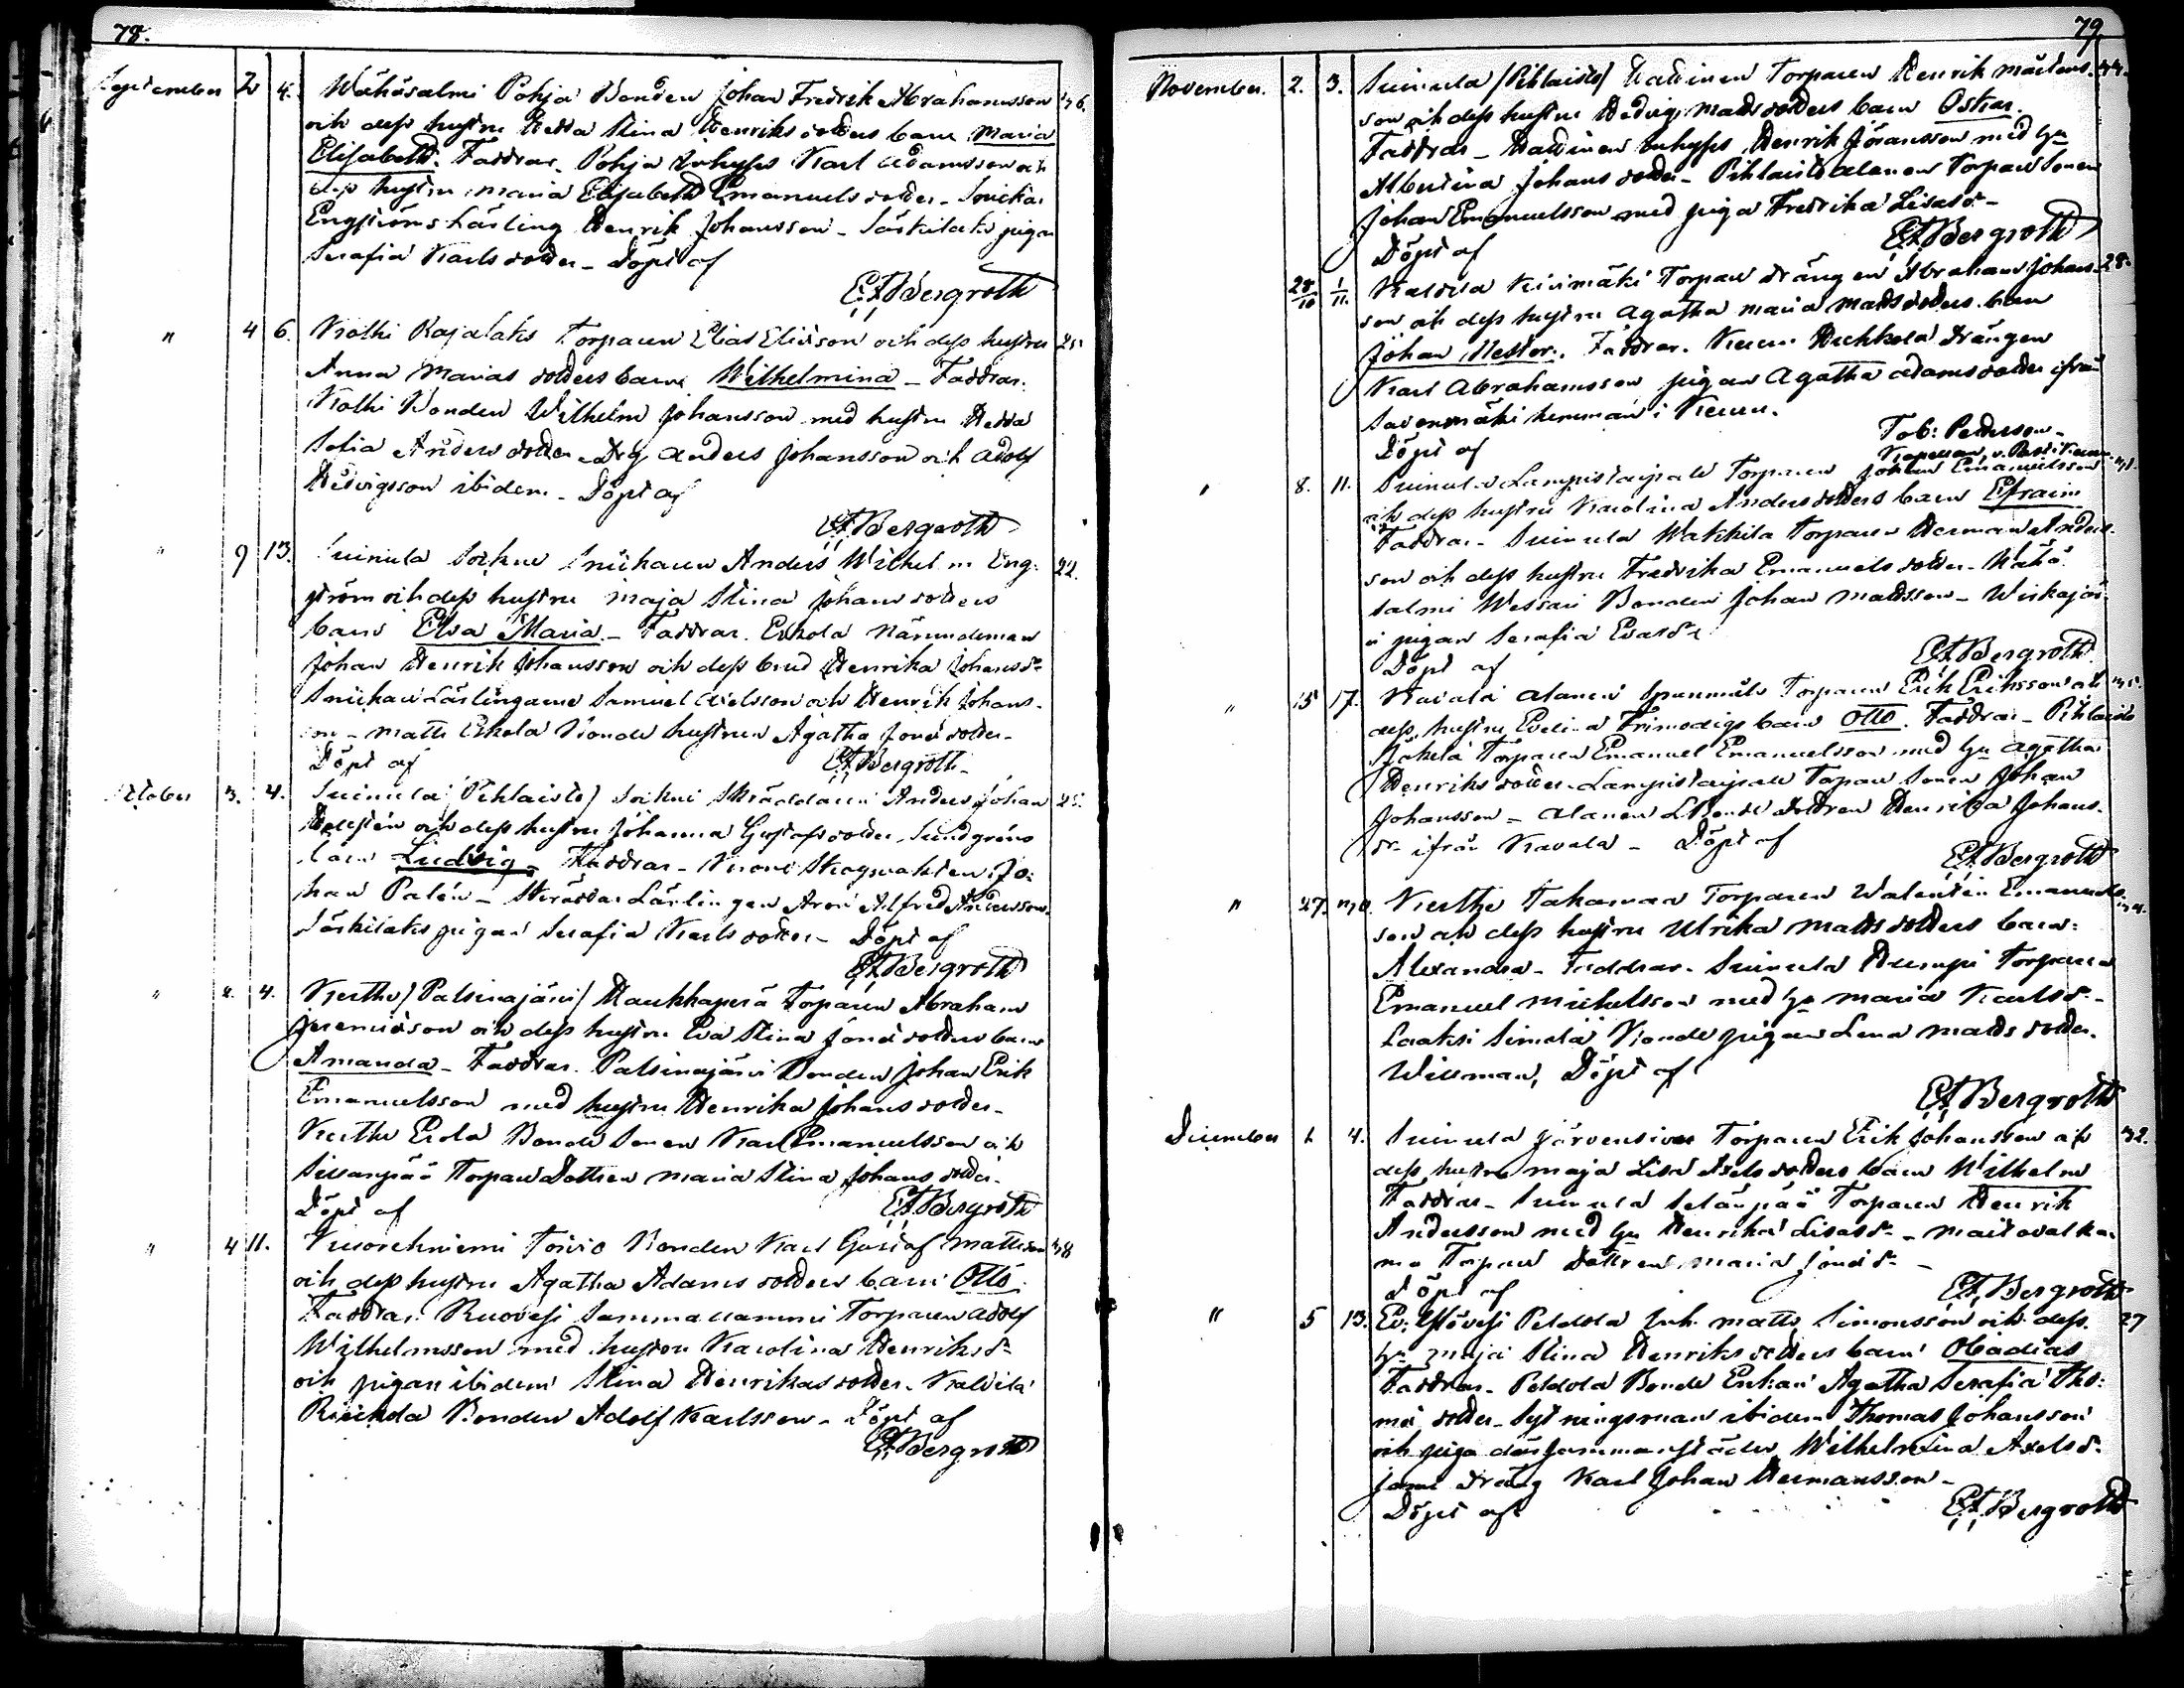 78.
September 2 4. Wähäsalmi Pohja Bonden Johan Fredrik Abrahamsson 36.
och dess hustru Hedda Stina Henriksdotters barn Maria
Elisabeth. Faddrar. Pohja Inhyses Karl Adamsson och
dess hustru Maria Elisabeth Emanuelsdotter - Snickar
Engströms Lärling Henrik Johansson - Särkilaks pigan
Serafia Karlsdotter - Döpt af
E A Bergroth
" 4 6. Kolhi Rajalaks Torparen Elias Eliasson och dess hustru 25.
Anna Mariasdotters barn Wilhelmina - Faddrar.
Kolhi Bonden Wilhelm Johansson med hustru Hedda
Sofia Andersdotter - Dg Anders Johansson och Adolf
Hedvigsson ibidem - Döpt af
E A Bergroth
" 9 13. Suinula Sockne Snickaren Anders Wilhelm Eng- 22.
ström och dess hustru Maja Stina Johansdotters
barn Elva Maria - Faddrar. Erkola Nämndeman
Johan Henrik Johansson och dess brud Henrika Johansdr
Snickare Lärlingarne Samuel Axelsson och Henrik Johans-
son - Matti Erkola Bonde hustrun Agatha Jonædotter -
Döpt af E A Bergroth -
October 3. 4. Suinula (Pihlaisto) Sockne Skräddaren Anders Johan 25.
och dess hustru Johanna Gustafsdotter Sundgréns
barn Ludvig - Faddrar - Krono Skogvakten Jo-
han Palén - Skräddar Lärlingen Aron Alfred Andersson
Särkilaks pigan Serafia Karlsdotter - Döpt af
E A Bergroth
" 2. 4. Kerthe (Palsinajärvi) Haukkaperä Torparen Abraham
Jeremiasson och dess hustru Eva Stina Jonædotters barn
Amanda - Faddrar. Palsinajärvi Bonden Johan Erik
Emanuelsson med hustru Henrika Johansdotter -
Kerthe Erola Bonde Sonen Karl Emanuelsson och
Sillanpää Torpare Dottren Maria Stina Johansdotter.
Döpt af E A Bergroth
" 4 11. Vuorehniemi Toivio Bonden Karl Gustaf Mattsson 38
och dess hustru Agatha Adamsdotters barn Otto.
Faddrar. Ruovesi Sammallammi Torparen Adolf
Wilhelmsson med hustru Karolina Henriksdr
och pigan ibidem Stina Henrikasdotter. Kaldila
Bonden Adolf Karlsson - Döpt af
E A Bergroth
79.
November. 2. 3. Suinula (Pihlaisto) Torparen Henrik Mårtens- 44.
son och dess hustru Hedvig Mattsdotters barn Oskar.
Faddrar - Inhyses Henrik Jöransson med hu
Albertina Johansdotter - Pihlaisto Alanen Torpare Sonen
Johan Emanuelsson med piga Fredrika Lisasdr -
Döpt af E A Bergroth
28/10 1/11. Kaldila Kivimäki Torpare drängen Abraham Johans- 28.
son och dess hustru Agatha Maria Mattsdotters barn
Johan Nestor. Faddrar. Keuru drängen
Karl Abrahamsson pigan Agatha Adamsdotter ifrån
Savenmäki hemman i Keuru.
Döpt af Tob: Pederson -
Kapellan, v. Past. i Keuru.
" 8. 11. Suinula Lampistaipale Torparen Johan Emanuelsson 31.
och dess hustru Karolina Andersdotters barn Efraim
Faddrar - Suinula Wakkila Torparen Herman Anders-
son och dess hustru Fredrika Emanuelsdotter - Wähä-
salmi Wessari Bonden Johan Mattsson - Wirkajär-
vi pigan Serafia Evasdr
Döpt af E A Bergroth
" 15 17. Kavala Alanen Torparen Erik Eriksson och 35.
dess hustru Evelina Frimodigs barn Otto. Faddrar - Pihlaisto
Jäkelä Torparen Emanuel Emanuelsson med hu Agatha
Henriksdotter - Lampistaipale Torpare Sonen Johan
Johansson - Alanen Bonde Dottren Henrika Johans-
dr ifrån Kavala - Döpt af
E A Bergroth
" 27. 30. Kerthe Takamaa Torparen Walentin Emanuels- 34.
son och dess hustru Ulrika Mattsdotters barn:
Alexandra - Faddrar. Suinula Torparen
Emanuel Michelsson med hu Maria Karlsdr -
Laaksi Simola Bonde pigan Lena Mattsdotter.
Willman, Döpt af
E A Bergroth
December 1. 4. Suinula Järvensivu Torparen Erik Johansson och 32.
dess hustru Maja Lisa Axelsdotters barn Wilhelm
Faddrar - Suinula Selänpää Torparen Henrik
Andersson med hu Henrika Lisasdr - Maitovalka-
ma Torpare Dottren Maria Jonædr -
Döpt af E A Bergroth
" 5 13. Ev: Ylövesi Peldola Inh. Matts Simonsson och dess 27
hu Maja Stina Henriksdotters barn Obadias
Faddrar - Peldola Bonde Enkan Agatha Serafia Tho-
mædotter - Sytningsman ibidem Thomas Johansson
och piga därsammanstädes Wilhelmina Axelsdr
samt dräng Karl Johan Hermansson -
Döpt af E A Bergroth